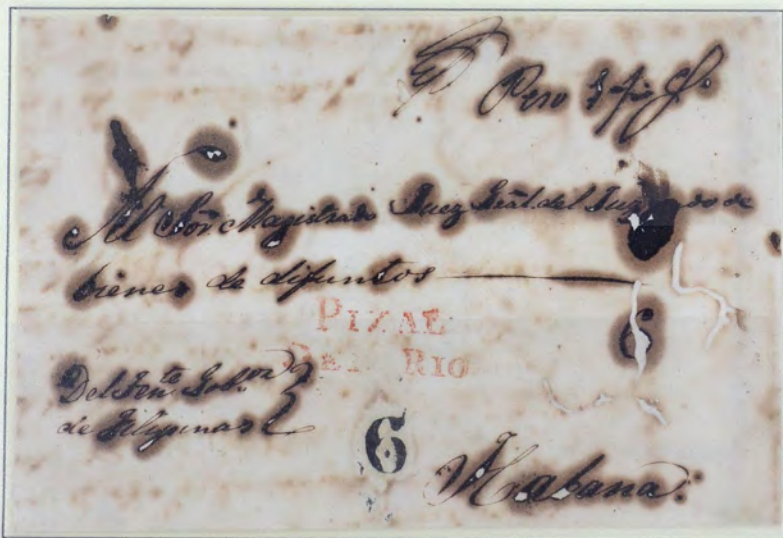 Al Sõr. Magistrado Juez Gral. del Juzgado de
bienes de difuntos
PINAR
DEL RIO
6
Del Ten.te Gob.or
de Filipinas
6
Habana.